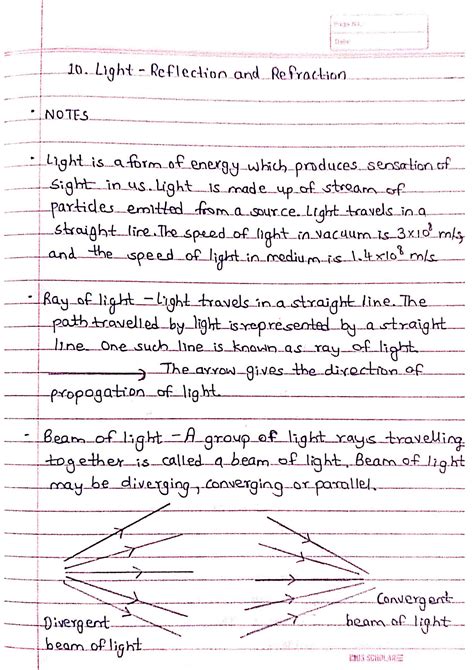 Page No.
Date
10. Light - Reflection and Refraction
• NOTES
• Light is a form of energy which produces sensation of
sight in us. Light is made up of stream of
particles emitted from a source. Light travels in a
straight line. The speed of light in vacuum is 3×10⁸ m/s,
and the speed of light in medium is 1.4×10⁸ m/s
• Ray of light - Light travels in a straight line. The
path travelled by light is represented by a straight
line. One such line is known as ray of light.
The arrow gives the direction of
propogation of light.
- Beam of light - A group of light rays travelling
together is called a beam of light. Beam of light
may be diverging, converging or parallel.
Divergent
beam of light
Convergent
beam of light
SCHOLAR